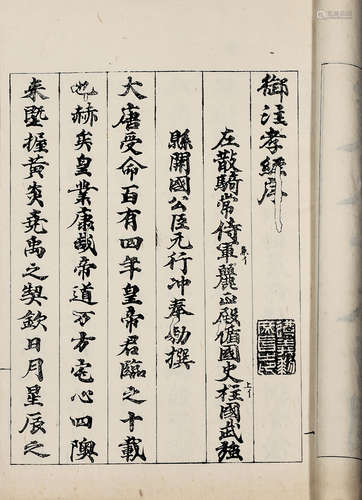 御注孝經序
左散騎常侍兼麗正殿脩國史柱國武強
縣開國公臣元行沖奉勅撰
大唐受命百有四年皇帝君臨之十載
也赫矣皇業康哉帝道万方宅心四隩
来曁握黃炎堯禹之契欽日月星辰之